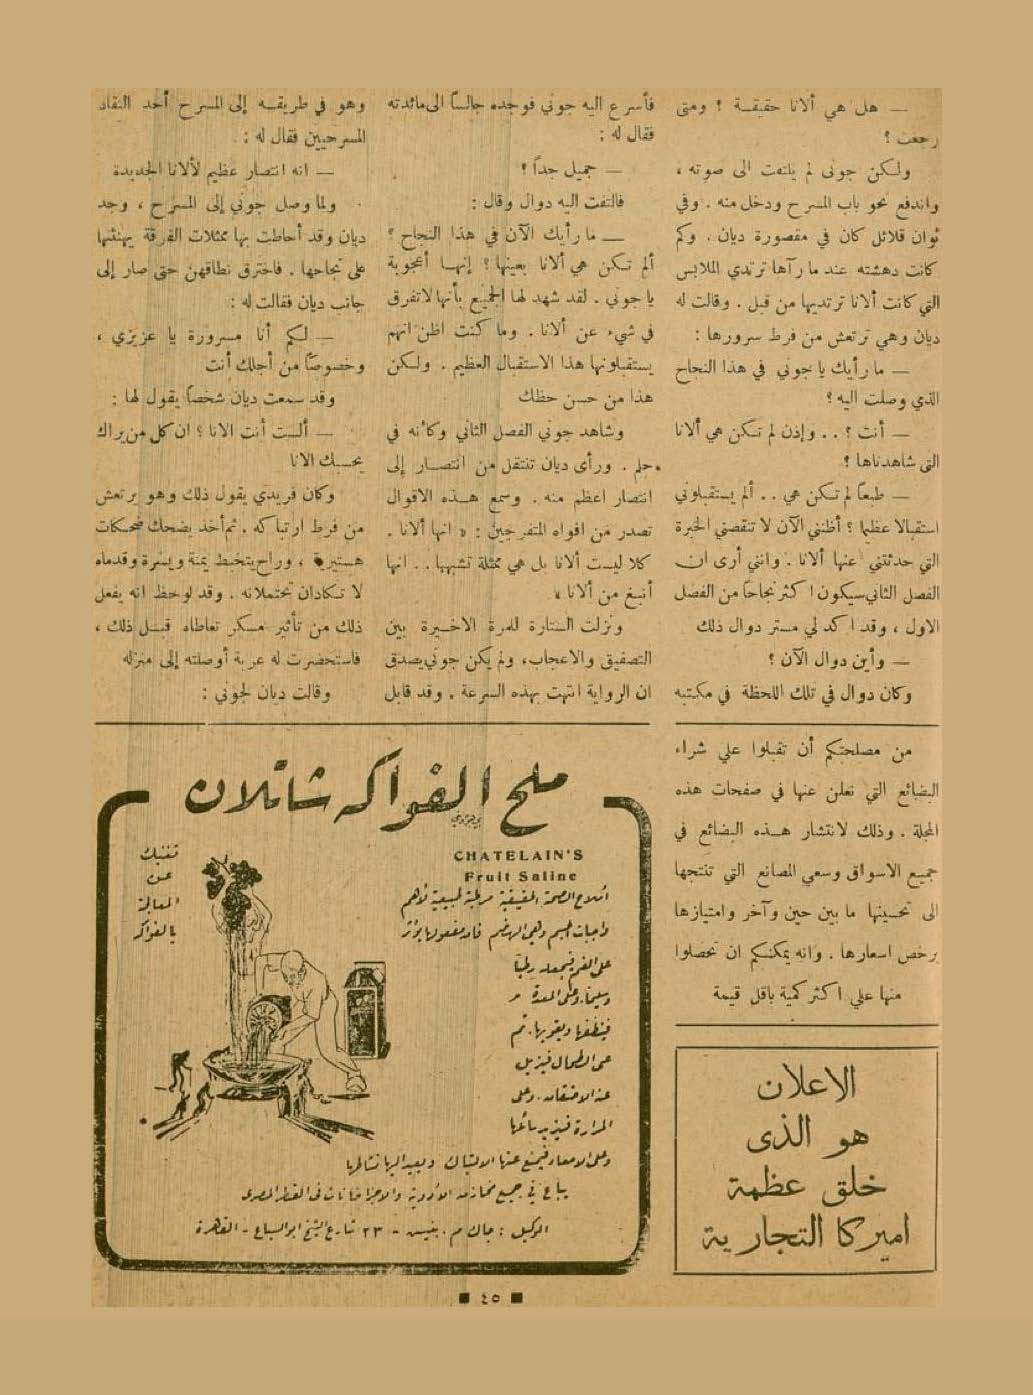 — هل هي ألانا حقيقة ؟ ومتى
رجعت ؟
ولكن جوني لم يلتفت الى صوته ،
واندفع نحو باب المسرح ودخل منه . وفي
ثوان قلائل كان في مقصورة ديان . وكم
كانت دهشته عند ما رآها ترتدي الملابس
التي كانت ألانا ترتديها من قبل . وقالت له
ديان وهي ترتعش من فرط سرورها :
— ما رأيك يا جوني في هذا النجاح
الذي وصلت اليه ؟
— أنت ؟ . . وإذن لم تكن هي ألانا
التي شاهدناها ؟
— طبعاً لم تكن هي . . ألم يستقبلوني
استقبالا عظيما ؟ أظنني الآن لا تنقصني الخبرة
التي حدثتني عنها ألانا . وانني أرى ان
الفصل الثاني سيكون اكثر نجاحاً من الفصل
الاول ، وقد اكد لي مستر دوال ذلك
— وأين دوال الآن ؟
وكان دوال في تلك اللحظة في مكتبه
فأسرع اليه جوني فوجده جالساً الى مائدته
فقال له :
— جميل جداً ؟
فالتفت اليه دوال وقال :
— ما رأيك الآن في هذا النجاح ؟
ألم تكن هي ألانا بعينها ؟ إنها أعجوبة
يا جوني . لقد شهد لها الجميع بأنها لا تفرق
في شيء عن ألانا . وما كنت اظن انهم
يستقبلونها هذا الاستقبال العظيم . ولكن
هذا من حسن حظك
وشاهد جوني الفصل الثاني وكأنه في
حلم . ورأى ديان تنتقل من انتصار إلى
انتصار اعظم منه . وسمع هذه الاقوال
تصدر من افواه المتفرجين : « انها ألانا .
كلا ليست ألانا بل هي ممثلة تشبهها . . انها
أنبغ من ألانا »
ونزلت الستارة للمرة الاخيرة بين
التصفيق والاعجاب، ولم يكن جوني يصدق
ان الرواية انتهت بهذه السرعة . وقد قابل
وهو في طريقه إلى المسرح أحد النقاد
المسرحيين فقال له :
— انه انتصار عظيم لألانا الجديدة
ولما وصل جوني إلى المسرح ، وجد
ديان وقد أحاطت بها ممثلات الفرقة يهنئنها
على نجاحها . فاخترق نطاقهن حتى صار إلى
جانب ديان فقالت له :
— لكم أنا مسرورة يا عزيزي ،
وخصوصاً من أجلك أنت
وقد سمعت ديان شخصاً يقول لها :
— ألست أنت الانا ؟ ان كل من يراك
يحسبك الانا
وكان فريدي يقول ذلك وهو يرتعش
من فرط ارتباكه . ثم أخذ يضحك ضحكات
هستيرية ، وراح يتخبط يمنة ويسرة وقدماه
لا تكادان تحتملانه . وقد لوحظ انه يفعل
ذلك من تأثير مسكر تعاطاه قبل ذلك ،
فاستحضرت له عربة أوصلته إلى منزله
وقالت ديان لجوني :
من مصلحتكم أن تقبلوا على شراء
البضائع التي تعلن عنها في صفحات هذه
المجلة . وذلك لانتشار هذه البضائع في
جميع الاسواق وسعي المصانع التي تنتجها
الى تحسينها ما بين حين وآخر وامتيازها
برخص اسعارها . وانه يمكنكم ان تحصلوا
منها على اكثر كمية باقل قيمة
الاعلان
هو الذى
خلق عظمة
اميركا التجارية
ملح الفواكه شاتلان
CHATELAIN'S
Fruit Saline
تغنيك
عن
المعالجة
بالفواكه
أملاح الصحة الحقيقية مرطبة طبيعية لأهم
واجبات الجسم وهي الهضم فان مفعولها يؤثر
على الفم فيجعله رطباً
وسليما، وعلى المعدة
فينظفها ويقويها، ثم
على الطحال فيزيل
عنه الاحتقان، وعلى
المرارة فيزيد مائها
وعلى الامعاء فيمنع عنها الامساك ويعيد اليها نشاطها
يباع في جميع مخازن الأدوية والاجزاخانات فى القطر المصرى
الوكيل : جاك م . بنيش - ٢٣ شارع الشيخ ابو السباع - القاهرة
٤٥